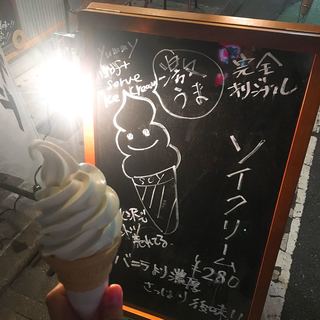 yummy
soft
serve
ice cream
濃くうま
完全
オリジナル
ソイクリーム
¥280
SOY
バニラより濃厚
さっぱり後味!!